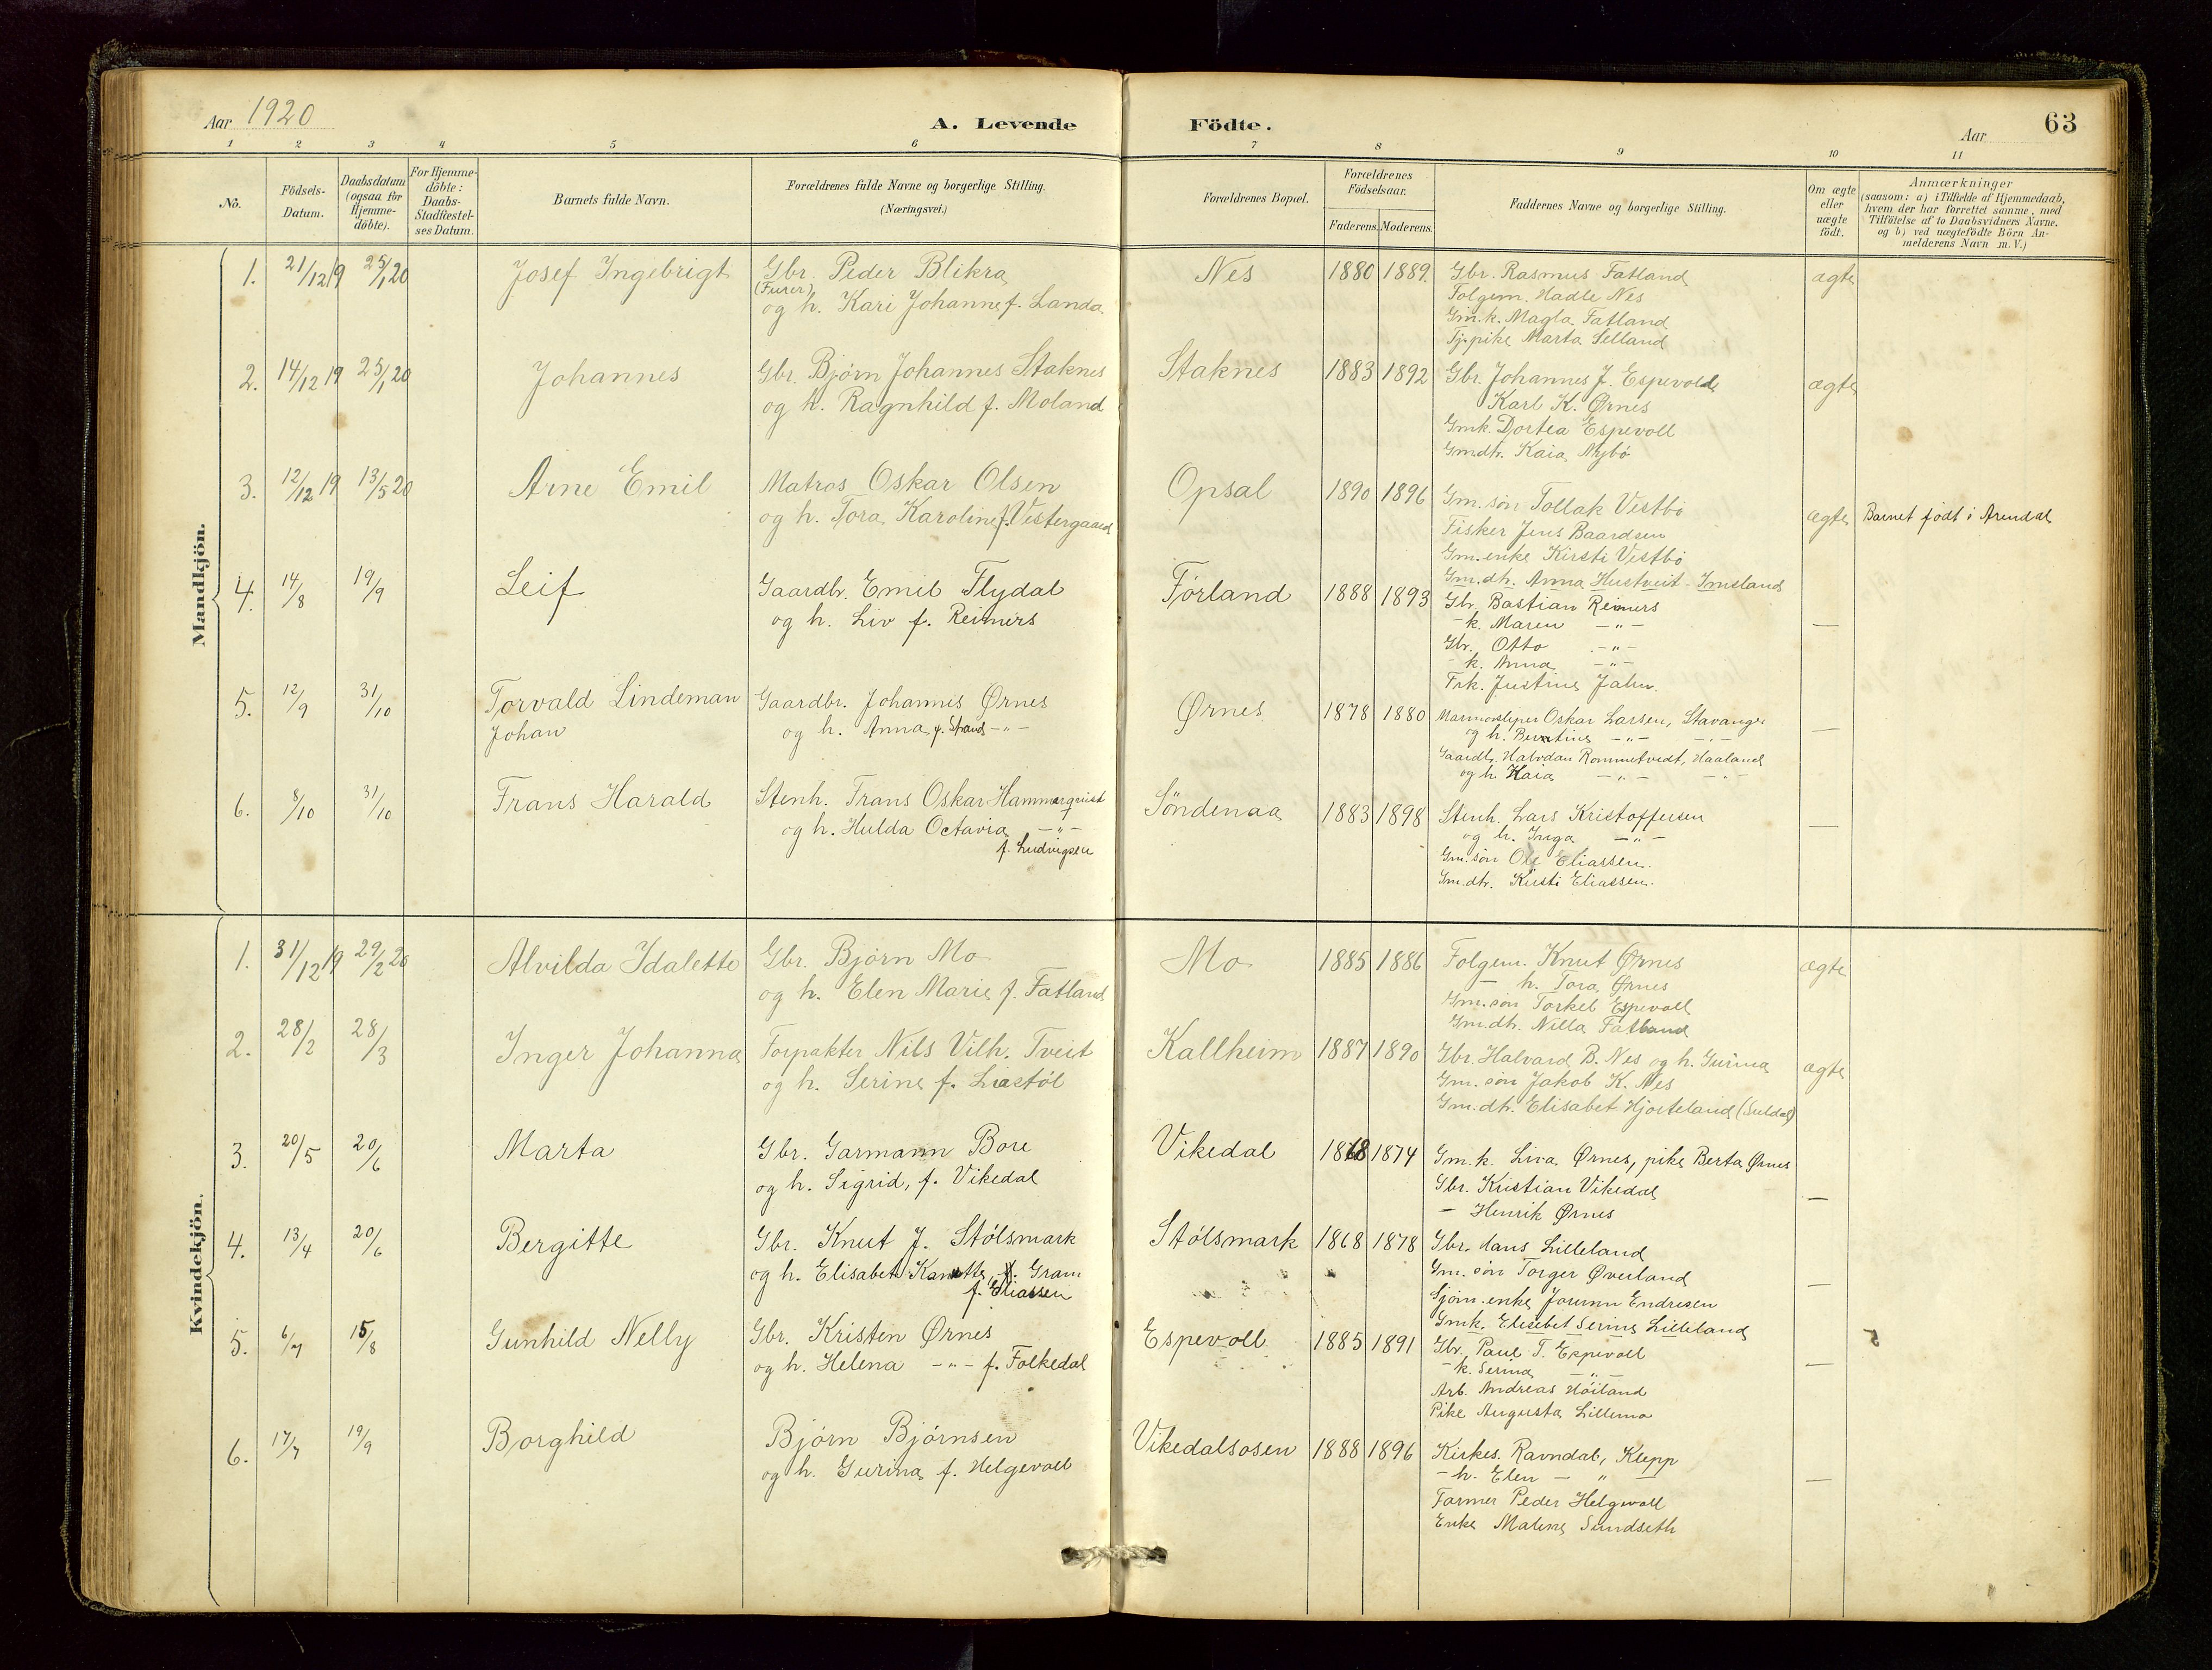 Aar 1920
A. Levende Födte.
Aar 63
1 2 3 4 5 6 7 8 9 10 11
No.
Födsels-Datum.
Daabsdatum (ogsaa for Hjemme-döbte).
For Hjemme-döbte: Daabs-Stadfæstel-ses Datum.
Barnets fulde Navn.
Forældrenes fulde Navne og borgerlige Stilling.
(Næringsvei.)
Forældrenes Bopæl.
Forældrenes Födselsaar.
Faderens. Moderens.
Faddernes Navne og borgerlige Stilling.
Om ægte eller uægte födt.
Anmærkninger
(saasom: a) i Tilfælde af Hjemmedaab,
hvem der har forrettet samme, med
Tilföielse af to Daabsvidners Navne.
og b) ved uægtefödte Börn An-
melderens Navn m. V.)
Mandkjön.
1. 21/12 19 25/1 20 Josef Ingebrigt Gbr. Peder Blikra Nes 1880 1889. Gbr. Rasmus Fatland ægte
(Furer)
og h. Kari Johanne f. Landa
Folgem. Hadle Nes
Gm.k. Magla Fatland
Tj.pike Marta Selland
2. 14/12 19 25/1 20 Johannes Gbr. Bjørn Johannes Staknes Staknes 1883 1892 Gbr. Johannes J. Espevold ægte
og h. Ragnhild f. Moland
Karl K. Ørnes
Gmk. Dortea Espevoll
Gmdtr. Kaia Nybø
3. 12/12 19 13/5 20 Arne Emil Matros Oskar Olsen Opsal 1890 1896 Gm. søn Tollak Vestbø ægte Barnet født i Arendal
og h. Tora Karoline f. Vestergaard
Fisker Jens Baardsen
Gm. enke Kirsti Vestbø
Gm. dtr. Anna Hustveit - Imsland
4. 14/8 19/9 Leif Gaardbr. Emil Flydal Førland 1888 1893 Gbr. Bastian Reimers —
og h. Liv f. Reimers
- k. Maren -"-
Gbr. Otto -"-
- k. Anna -"-
Frk. Justine Jahn.
5. 12/9 31/10 Torvald Lindeman Gaardbr. Johannes Ørnes Ørnes 1878 1880 Marmorsliper Oskar Larsen, Stavanger —
Johan og h. Anna f. Strand -"-
og h. Berntine -"- -"-
Gaardb. Halvdan Rommetvedt, Haaland
og h Kaia -"- -"-
6. 8/10 31/10 Frans Harald Stenh. Frans Oskar Hammarquist Søndenaa 1883 1898 Stenh. Lars Kristoffersen —
og h. Hulda Octavia -"-
f. Ludvigsen
og h. Inga -"-
Gm. søn Ole Eliassen.
Gm. dtr. Kirsti Eliassen.
Kvindekjön.
1. 31/12 19 29/2 20 Alvilda Idalette Gbr. Bjørn Mo Mo 1885 1886 Folgem. Knut Ørnes ægte
og h. Elen Marie f. Fatland
- h. Tora Ørnes
Gm. søn Torkel Espevoll
Gm. dtr. Nilla Fatland
2. 28/2 28/3 Inger Johanna Forpakter Nils Vilh. Tveit Kallheim 1887 1890 Gbr. Halvard B. Nes og h. Gurina ægte
og h. Serine f. Liastøl
Gm. søn Jakob K. Nes
Gm. dtr. Elisabet Hjorteland (Suldal)
3. 20/5 20/6 Marta Gbr. Garmann Bore Vikedal 1868 1874 Gm. k. Liva Ørnes, pike Berta Ørnes —
og h. Sigrid, f. Vikedal
Gbr. Kristian Vikedal
- Henrik Ørnes
4. 13/4 20/6 Bergitte Gbr. Knut J. Stølsmark Stølsmark 1868 1878 Gbr. Hans Lilleland —
og h. Elisabet Kanutte, f. Gram
f. Eliassen
Gm. søn Torger Øverland
Sjøm. enke Jorunn Endresen
Gmk. Elisebet Serine Lilleland
5. 6/7 15/8 Gunhild Nelly Gbr. Kristen Ørnes Espevoll 1885 1891 Gbr. Paul T. Espevoll —
og h. Helena -"- f. Folkedal
- k. Serina -"-
Arb. Andreas Høiland
Pike Augusta Lillemo
6. 17/7 19/9 Borghild Bjørn Bjørnsen Vikedalsosen 1888 1896 Kirkes. Ravndal, Klepp —
og h. Gurina f. Helgevoll
- h. Elen - " -
Farmer Peder Helgevoll
Enke Malene Sundseth